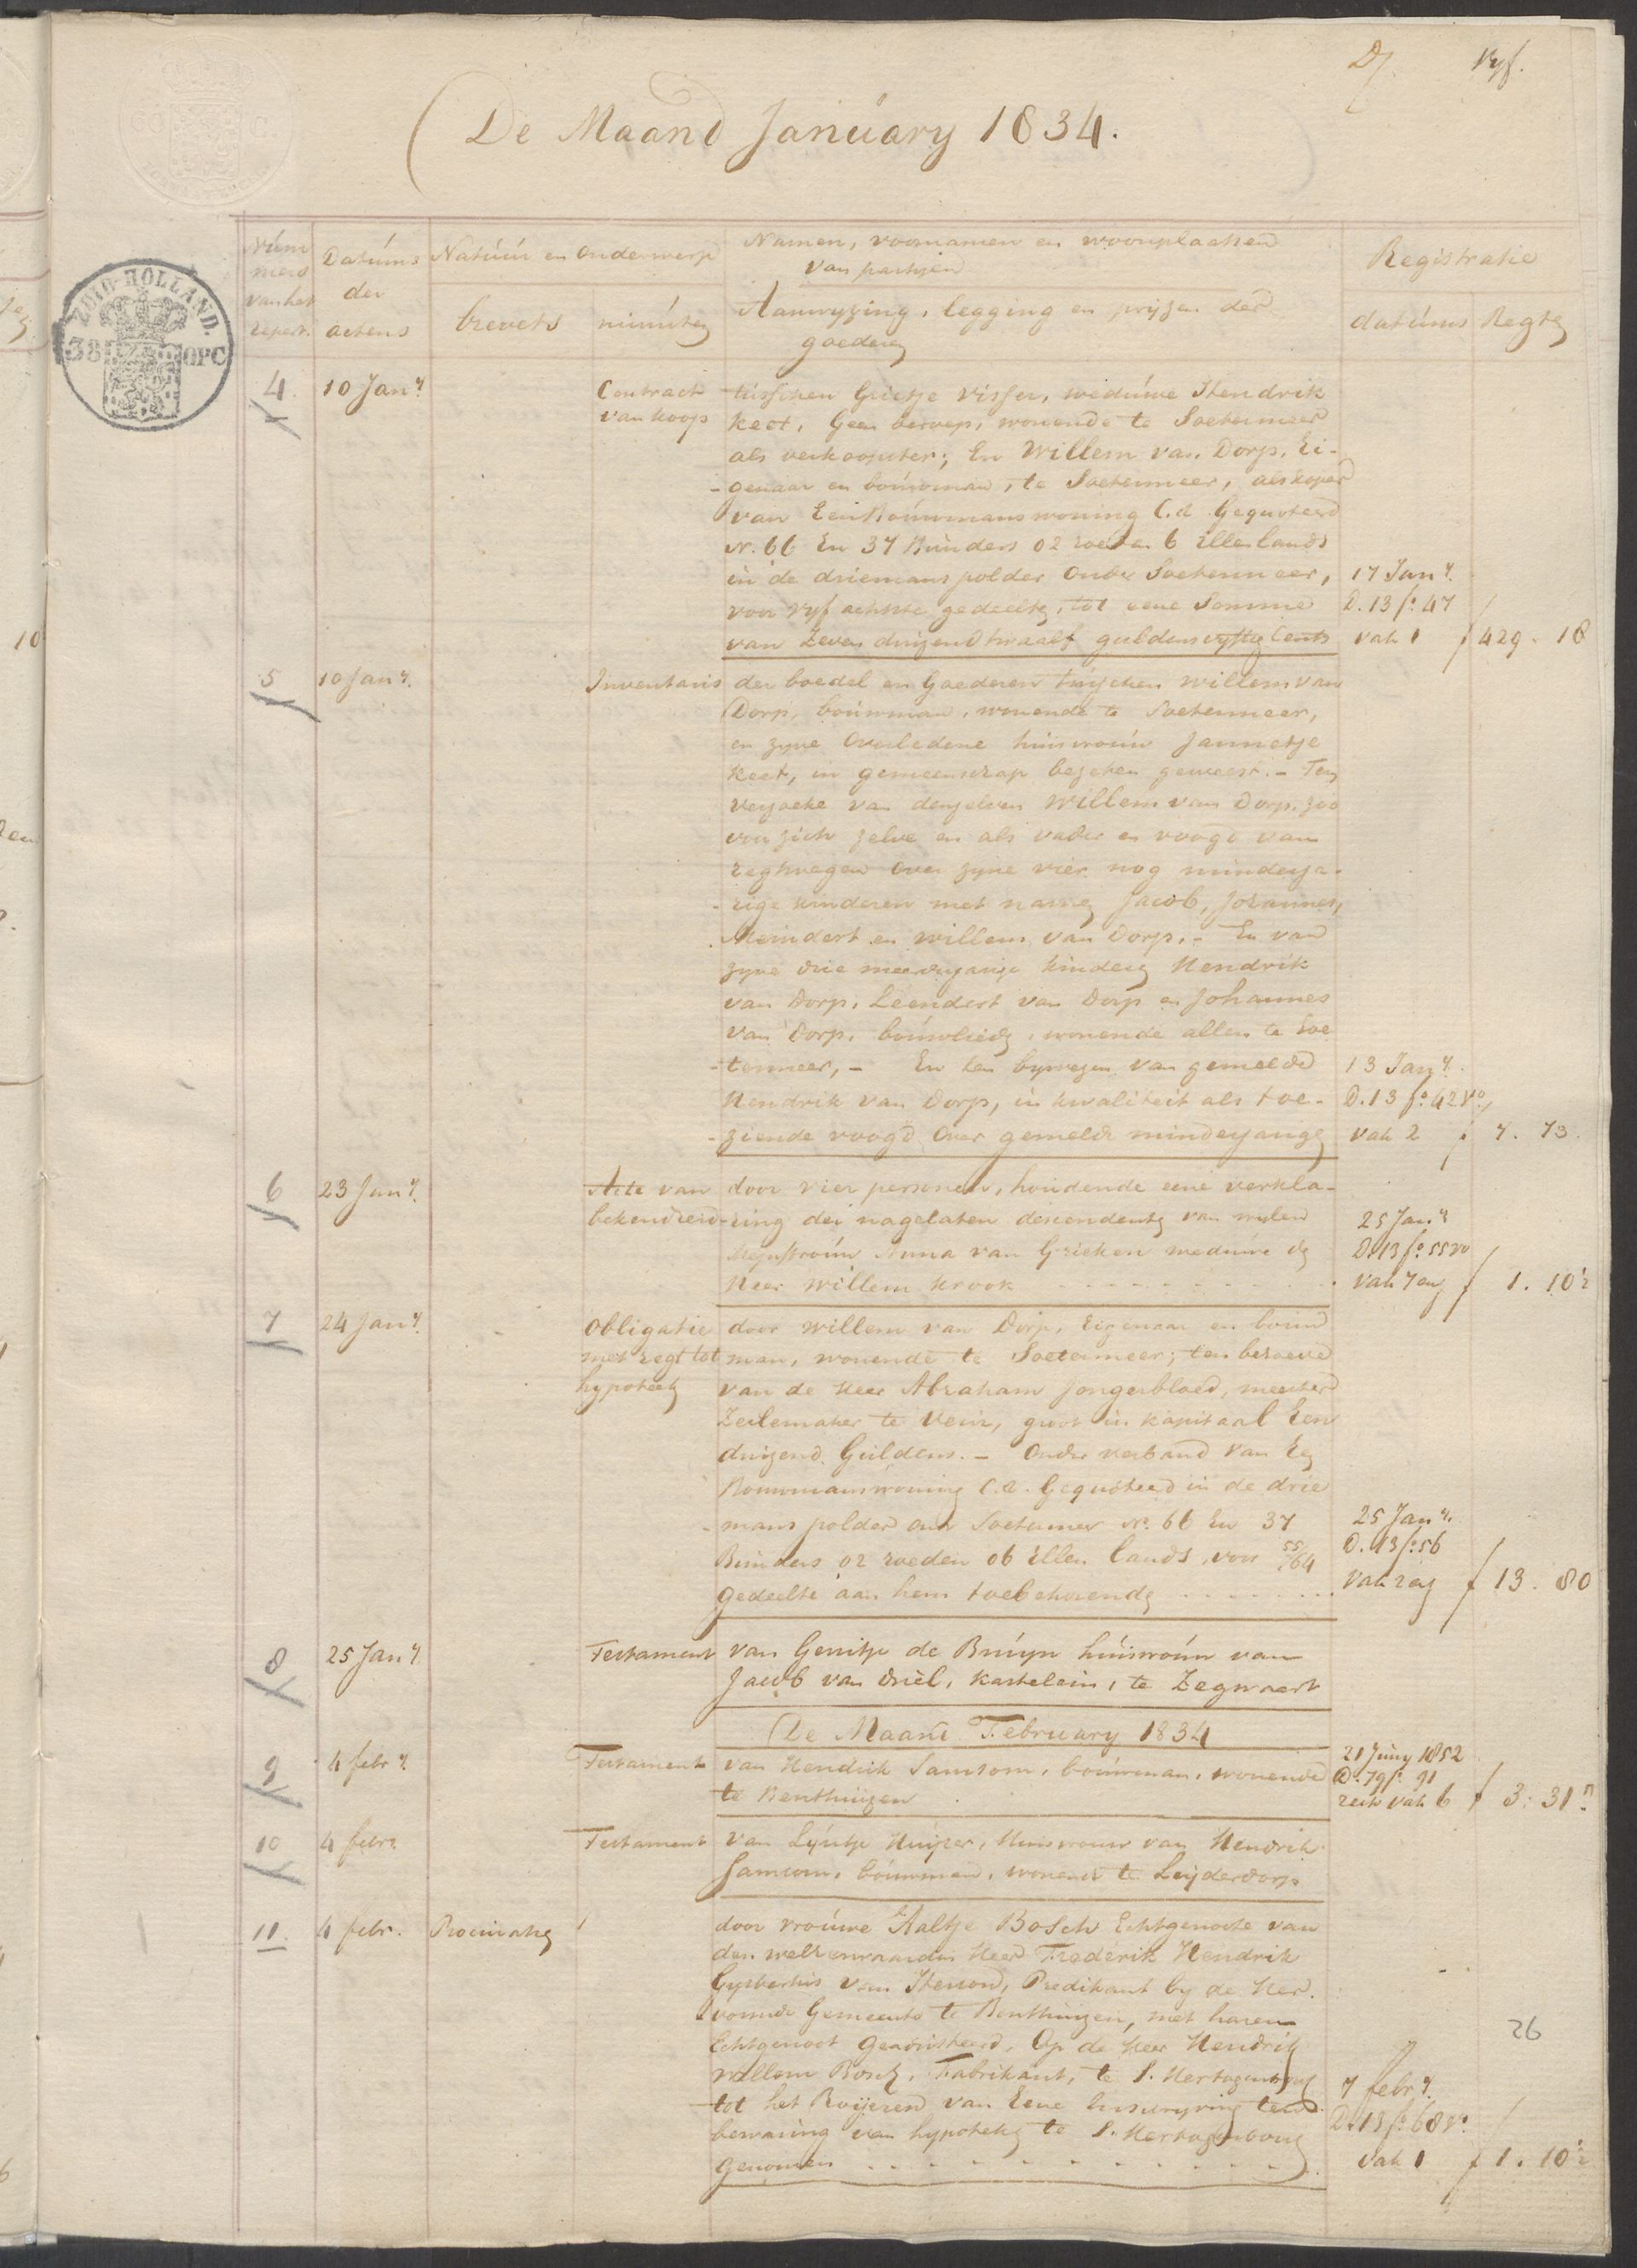 Vyf.
De Maand January 1834.
Num
mers
van het
repert.
Datums
der
actens
Natuur en Onderwerp
brevets
minuten
Namen, voornamen en woonplaatsen
van partyen
Aanwyzing, legging en pryzen der
goederen
Registratie
datums
Regten
ZUID-HOLLAND.
38 OPC
4.
10 Jany.
Contract
van koop
tusschen Grietje Visser, weduwe Hendrik
Keet, Geen beroep, wonende te Soetermeer
als verkoopster; En Willem van Dorp, Ei-
-genaar en bouwman, te Soetermeer, als koper
van Een Bouwmanswoning C.a. Gequoteerd
No. 66 En 37 Bunders 02 roeden 6 Ellen lands
in de driemanspolder Onder Soetermeer,
voor vyf achtste gedeelten, tot eene Somme
van Zeven duizend twaalf guldens vyftig Cents
17 Jany.
D. 13 fo. 47
vak 1 f 429. 18
5
10 Jany.
Inventaris
der boedel en Goederen tusschen Willem van
Dorp, bouwman, wonende te Soetermeer,
en zyne Overledene huisvrouw Jannetje
Keet, in gemeenschap bezeten geweest. - Ten
verzoeke van denzelven Willem van Dorp, zoo
voor zich zelve en als vader en voogd van
regtswegen over zyne vier nog minderja-
-rige kinderen met namen Jacob, Johannes,
Meindert en Willem van Dorp. - En van
zyne drie meerderjarige kinderen Hendrik
van Dorp, Leendert van Dorp en Johannes
van Dorp, bouwlieden, wonende allen te Soe
-termeer, - En ten bywezen van gemelde
Hendrik van Dorp, in kwaliteit als toe-
-ziende voogd Over gemelde minderjarigen
13 Jany.
D. 13 fo. 42 vo.
vak 2 f 7. 73.
6
23 Jany.
Acte van
bekendheid
door vier personen, houdende eene verkla-
-ring der nagelaten descendenten van wylen
Mejuffrouw Anna van Grieken weduwe den
Heer Willem Krook
25 Jany
D. 13 fo. 55 vo
vak 7 en f 1. 10½
7
24 Jany.
Obligatie
met regt tot
hypotheek
door Willem van Dorp, Eigenaar en bouw
man, wonende te Soetermeer; ten behoeve
van de Heer Abraham Jongebloed, meester
Zeilemaker te Veur, groot in kapitaal Een
duizend Guldens. - Onder verband van Een
Bouwmanswoning C.a. Gequoteerd in de drie
-manspolder onder Soetermeer No. 66 En 37
Bunders 02 roeden 06 Ellen lands, voor 55/64
gedeelte aan hem toebehorende
25 Jany.
D. 13 fo. 56
vak 2 en f 13. 80
8
25 Jany.
Testament
van Gerritje de Bruyn huisvrouw van
Jacob van Driel, Kastelein, te Zegwaart
De Maand February 1834
9
4 febry.
Testament
van Hendrik Samsom, bouwman, wonende
te Benthuizen
21 Juny 1852
D. 79 fo. 91
recto vak 6 f 3: 31½
10
4 febr.
Testament
van Lyntje Huyzer, Huisvrouw van Hendrik
Samsom, bouwman, wonende te Leyderdorp
11.
4 febr.
Procuratie
door vrouwe Aaltje Bosch Echtgenoote van
den weleerwaarden Heer Frederik Hendrik
Gysbertus van Iterson, Predikant by de Her.
vormde Gemeente te Benthuizen, met haren
Echtgenoot Geadsisteerd, Op de Heer Hendrik
Willem Bosch, Fabrikant, te S. Hertogenbosch
tot het Royeren van Eene Inschryving ten
bewaring van hypotheken te S. Hertogenbosch
Genomen
7 febry.
D. 13 fo. 68 vo.
vak 1 f 1. 10½
26